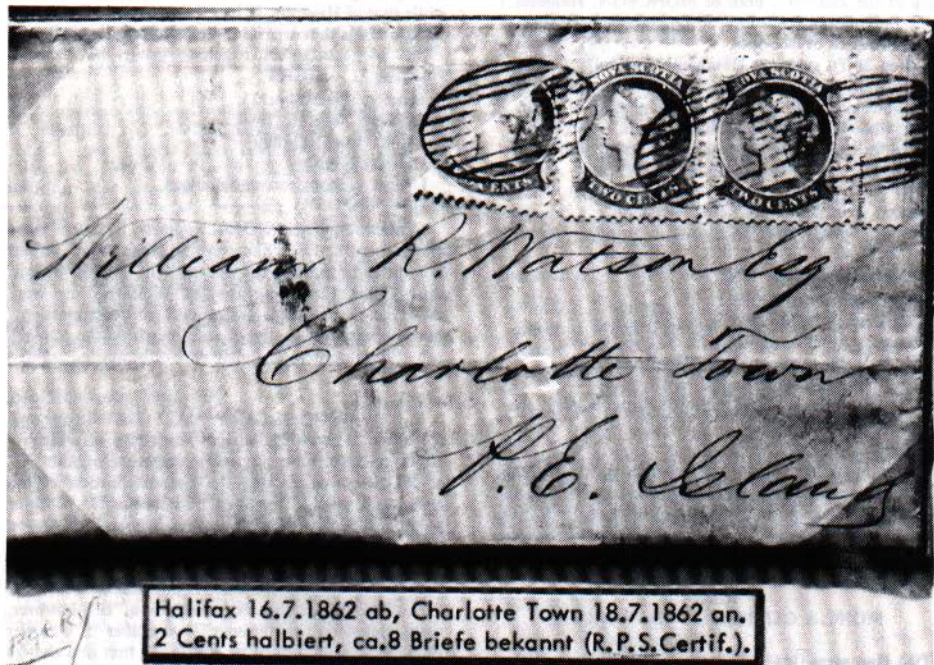 NOVA SCOTIA NOVA SCOTIA
CENTS TWO CENTS TWO CENTS
William R. Watson Esq
Charlotte Town
P. E. Island
Halifax 16.7.1862 ab, Charlotte Town 18.7.1862 an.
2 Cents halbiert, ca.8 Briefe bekannt (R.P.S.Certif.).